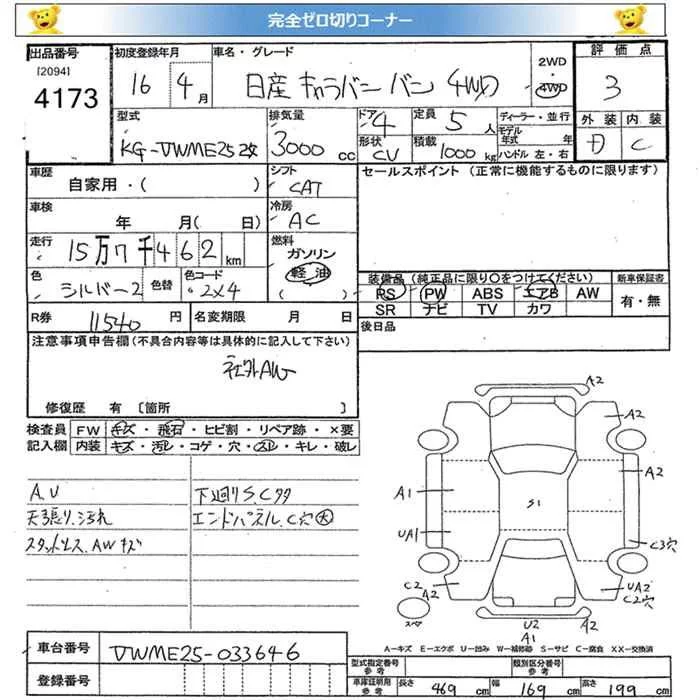 完全ゼロ切りコーナー
出品番号 初度登録年月 車名・グレード 2WD・4WD 評価点
[2094]
4173 16 4月 日産 キャラバン バン 4WD 3
型式 排気量 ドア 定員 ディーラー・並行 外装 内装
KG-VWME25改 3000cc 4 5人 モデル年式 年
形状 CV 積載 1000kg ハンドル 左・右 D C
車歴 シフト セールスポイント (正常に機能するものに限ります)
自家用・( ) CAT
車検 冷房
年 月( 日) AC
走行 燃料
15万7千462km ガソリン
軽油
( )
色 色替 色コード 装備品 (純正品に限り○をつけてください) 新車保証書
シルバー2 2X4 PS PW ABS エアB AW 有・無
SR ナビ TV カワ
R券 11540円 名変期限 月 日 後日品
注意事項申告欄(不具合内容等は具体的に記入して下さい)
社外AW
修復歴 有 [箇所 ]
検査員 FW キズ・飛石・ヒビ割・リペア跡・×要
記入欄 内装 キズ・汚レ・コゲ・穴・スレ・キレ・破レ
A.U 下廻りSCサ
天張り.汚れ エンドパネル.C穴大
スタッドレス.AWキズ
A2
A2
A2
A1
S1
UA1
C3穴
C2
A2
UA2
C2穴
スペア
U2
A1
A2
A-キズ E-エクボ U-凹み W-補修跡 S-サビ C-腐食 XX-交換済
車台番号 VWME25-033646
型式指定番号 参考 類別区分番号 参考
登録番号 車庫証明用 参考 長さ 469cm 幅 169cm 高さ 199cm